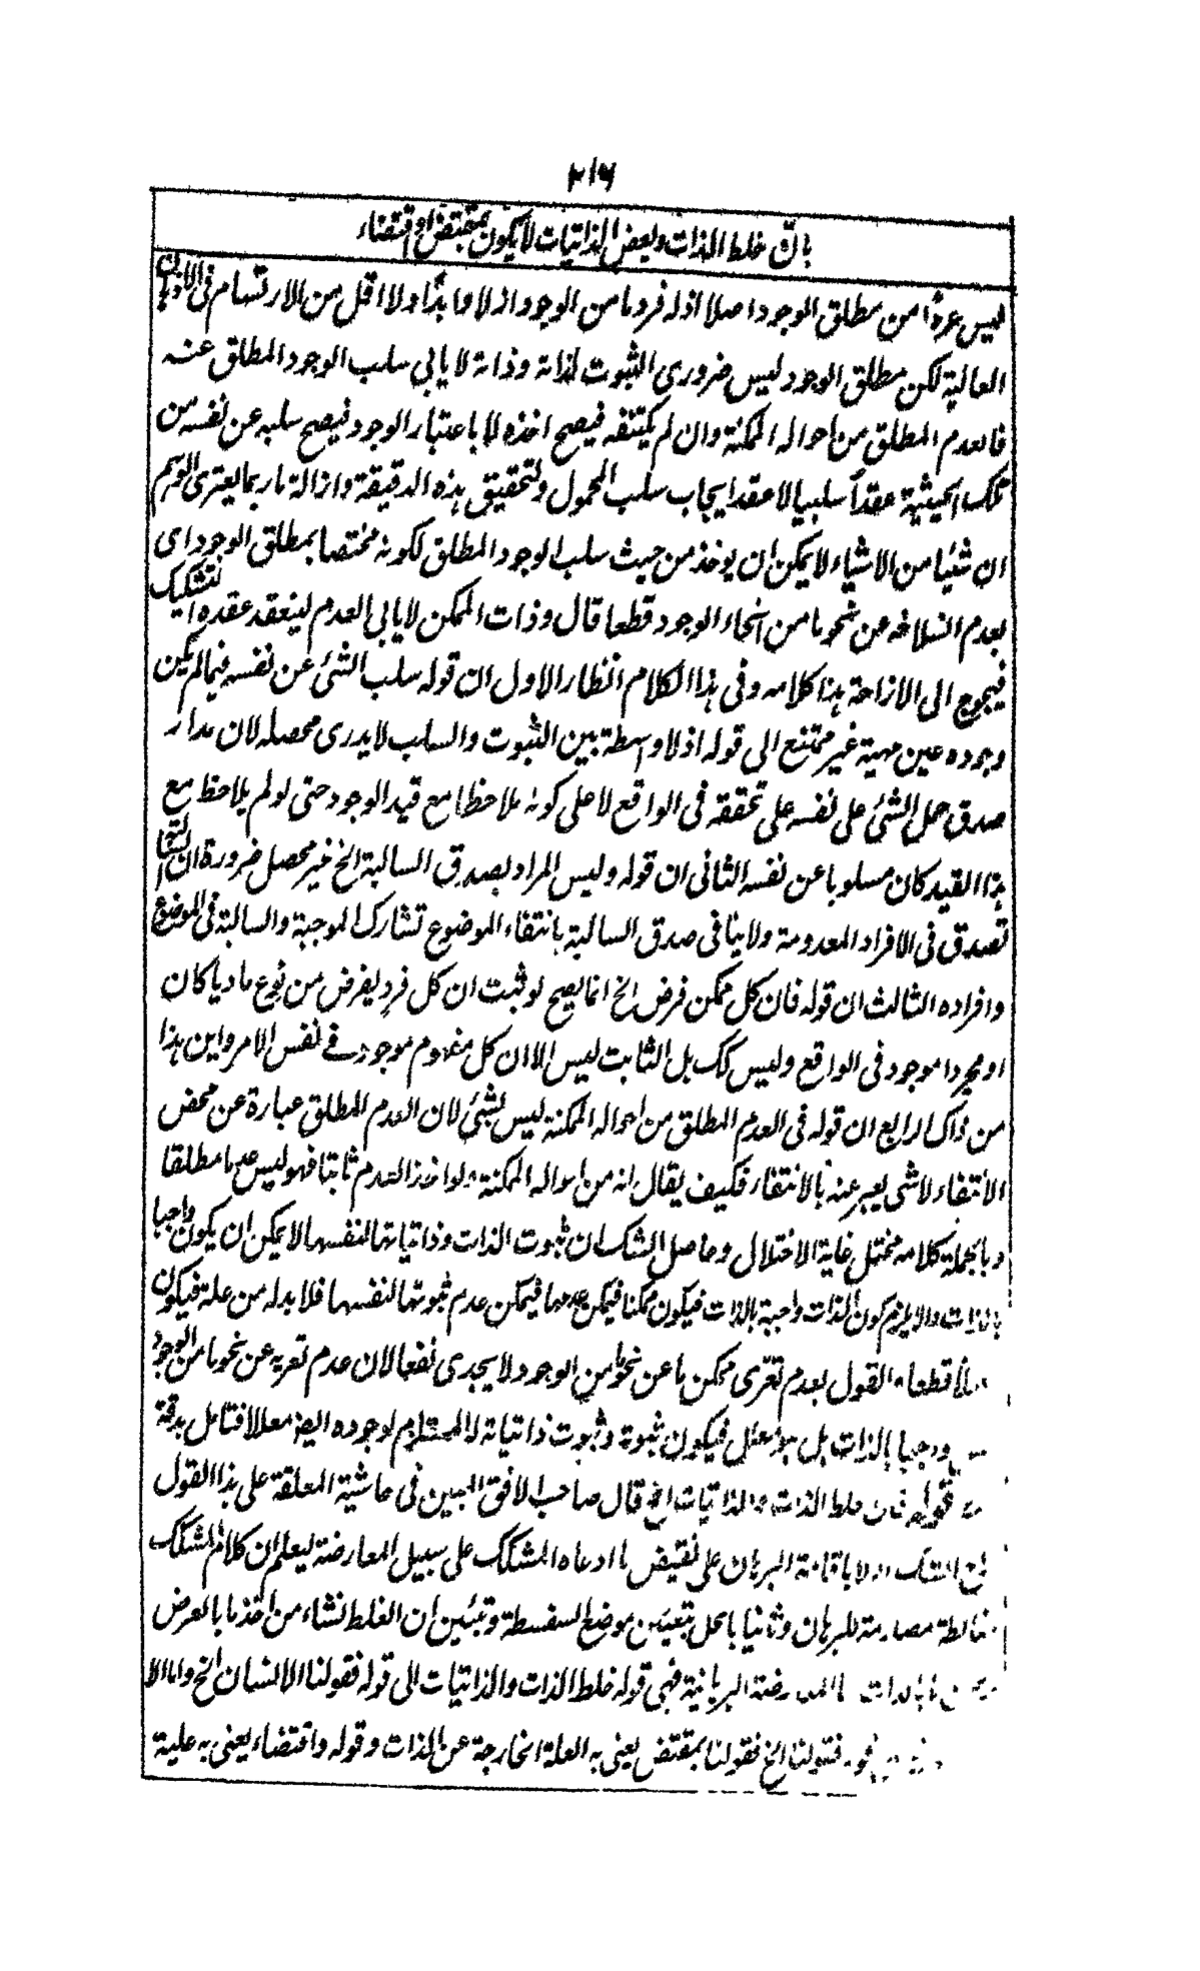 ٢١٦
بان خلط الذات وبعض الذاتيات لا يكون بمقتض او اقتضاء
ليس عروًا من مطلق الوجود اصلا اذ له فرد ما من الوجود ازلا وابدًا ولا اقل من الارتسام فى الاذهان
العالية لكن مطلق الوجود ليس ضرورى الثبوت لذاته وذاته لا يابى سلب الوجود المطلق عنه
فالعدم المطلق من احواله الممكنة وان لم يكتنفه فيصح اخذه لا باعتبار الوجود فيصح سلبه عن نفسه من
تلك الحيثية عقدًا سلبيا لا عقد ايجاب سلب المحمول ولتحقيق هذه الدقيقة وازالة ما ربما يعترى الوهم
ان شيئا من الاشياء لا يمكن ان يوخذ من حيث سلب الوجود المطلق لكونه مختصا بمطلق الوجود اى
لعدم انسلاخه عن نحو ما من انحاء الوجود قطعا قال وذات الممكن لا يابى العدم لينعقد عقدة التشكيك
فيحوج الى الازاحة هذا كلامه وفى هذا الكلام انظار الاول ان قوله سلب الشئ عن نفسه فيما لم يكن
وجوده عين مهية غير ممتنع الى قوله اذ لا واسطة بين الثبوت والسلب لا يدرى محصله لان مدار
صدق حمل الشئ على نفسه على تحققه فى الواقع لا على كونه ملاحظا مع قيد الوجود حتى لو لم يلاحظ مع
هذا القيد كان مسلوبا عن نفسه الثانى ان قوله وليس المراد بصدق السالبة الخ غير محصل ضرورة ان
تصدق فى الافراد المعدومة ولا ينافى صدق السالبة بانتفاء الموضوع تشارك الموجبة والسالبة فى الموضوع
وافراده الثالث ان قوله فان كل ممكن فرض الخ انما يصح لو ثبت ان كل فرد يفرض من نوع ماديا كان
او مجردا موجود فى الواقع وليس كك بل الثابت ليس الا ان كل مفهوم موجود فى نفس الامر واين هذا
من ذاك الرابع ان قوله فى العدم المطلق من احواله الممكنة ليس بشئ لان العدم المطلق عبارة عن محض
الانتفاء لا شئ يعبر عنه بالانتفاء فكيف يقال انه من احواله الممكنة ولو اخذ العدم ثابتا فهو ليس عدما مطلقا
وبالجملة كلامه مختل غاية الاختلال وحاصل الشك ان ثبوت الذات وذاتياتها لنفسها لا يمكن ان يكون واجبا
بالذات والا يلزم كون الذات واجبة بالذات فيكون ممكنا فيمكن عدمها فيمكن عدم ثبوتها لنفسها فلا بد له من علة فيكون
قطعا والقول بعدم تعرى ممكن ما عن نحو ما من الوجود لا يجدى نفعا لان عدم تعريه عن نحو ما من الوجود
بالذات بل هو معلل فيكون ثبوته وثبوت ذاتياته لا المستلزم لوجوده ايضا معللا فتامل بدقة
قوله فان خلط الذات والذاتيات الخ قال صاحب الافق المبين فى حاشية المعلقة على هذا القول
الشك اولا باقامة البرهان على نقيض ما ادعاه المشكك على سبيل المعارضة ليعلم ان كلام المشكك
مغالطة مصادمة للبرهان وثانيا بالحل بتعيين موضع السفسطة وتبيين ان الغلط نشاء من اخذ ما بالعرض
بالذات المعارضة البرهانية فهى قوله خلط الذات والذاتيات الى قوله فقولنا الانسان الخ واما الا
فقولنا الخ فقولنا بمقتض يعنى به العلة الخارجة عن الذات وقوله واقتضاء يعنى به علية